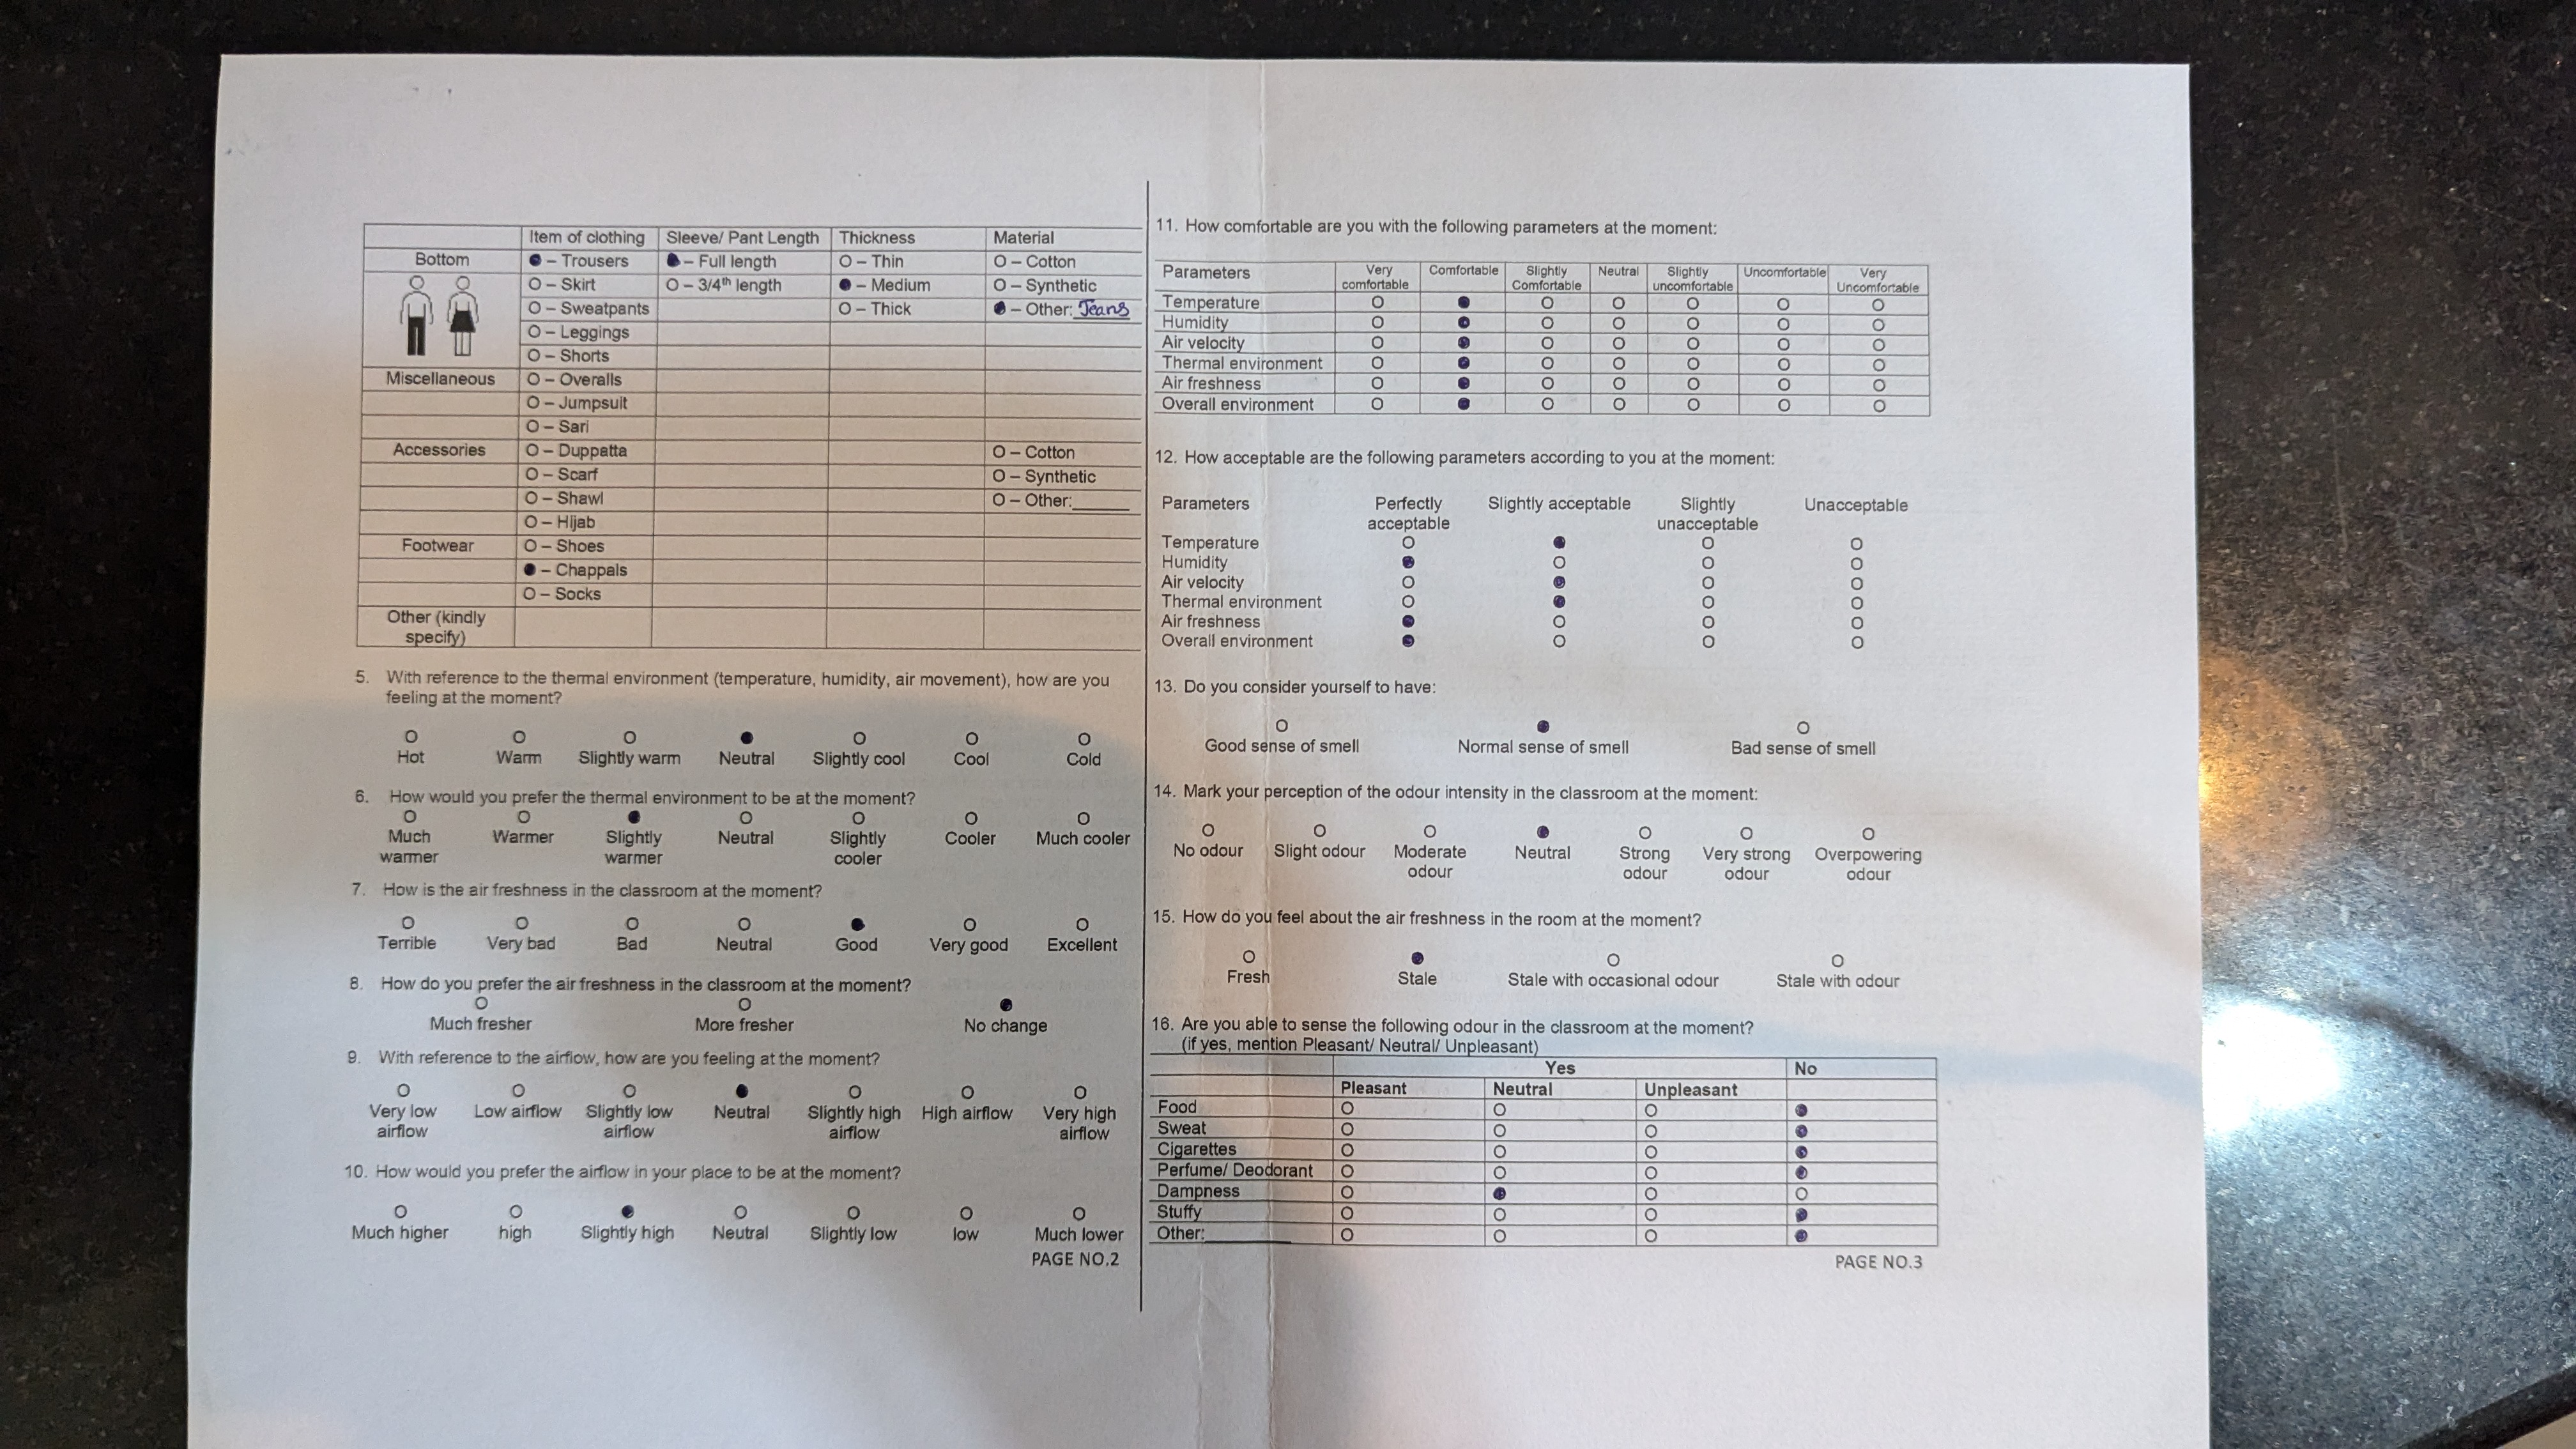 Item of clothing Sleeve/ Pant Length Thickness Material
Bottom ● – Trousers ● – Full length O – Thin O – Cotton
O – Skirt O – 3/4th length ● – Medium O – Synthetic
O – Sweatpants O – Thick ● – Other: Jeans
O – Leggings
O – Shorts
Miscellaneous O – Overalls
O – Jumpsuit
O – Sari
Accessories O – Duppatta O – Cotton
O – Scarf O – Synthetic
O – Shawl O – Other:______
O – Hijab
Footwear O – Shoes
● – Chappals
O – Socks
Other (kindly
specify)
5. With reference to the thermal environment (temperature, humidity, air movement), how are you
feeling at the moment?
O O O ● O O O
Hot Warm Slightly warm Neutral Slightly cool Cool Cold
6. How would you prefer the thermal environment to be at the moment?
O O ● O O O O
Much Warmer Slightly Neutral Slightly Cooler Much cooler
warmer warmer cooler
7. How is the air freshness in the classroom at the moment?
O O O O ● O O
Terrible Very bad Bad Neutral Good Very good Excellent
8. How do you prefer the air freshness in the classroom at the moment?
O O ●
Much fresher More fresher No change
9. With reference to the airflow, how are you feeling at the moment?
O O O ● O O O
Very low Low airflow Slightly low Neutral Slightly high High airflow Very high
airflow airflow airflow airflow
10. How would you prefer the airflow in your place to be at the moment?
O O ● O O O O
Much higher high Slightly high Neutral Slightly low low Much lower
PAGE NO.2
11. How comfortable are you with the following parameters at the moment:
Parameters Very Comfortable Slightly Neutral Slightly Uncomfortable Very
comfortable Comfortable uncomfortable Uncomfortable
Temperature O ● O O O O O
Humidity O ● O O O O O
Air velocity O ● O O O O O
Thermal environment O ● O O O O O
Air freshness O ● O O O O O
Overall environment O ● O O O O O
12. How acceptable are the following parameters according to you at the moment:
Parameters Perfectly Slightly acceptable Slightly Unacceptable
acceptable unacceptable
Temperature O ● O O
Humidity ● O O O
Air velocity O ● O O
Thermal environment O ● O O
Air freshness ● O O O
Overall environment ● O O O
13. Do you consider yourself to have:
O ● O
Good sense of smell Normal sense of smell Bad sense of smell
14. Mark your perception of the odour intensity in the classroom at the moment:
O O O ● O O O
No odour Slight odour Moderate Neutral Strong Very strong Overpowering
odour odour odour odour
15. How do you feel about the air freshness in the room at the moment?
O ● O O
Fresh Stale Stale with occasional odour Stale with odour
16. Are you able to sense the following odour in the classroom at the moment?
(if yes, mention Pleasant/ Neutral/ Unpleasant)
Yes No
Pleasant Neutral Unpleasant
Food O O O ●
Sweat O O O ●
Cigarettes O O O ●
Perfume/ Deodorant O O O ●
Dampness O ● O O
Stuffy O O O ●
Other:_________ O O O ●
PAGE NO.3